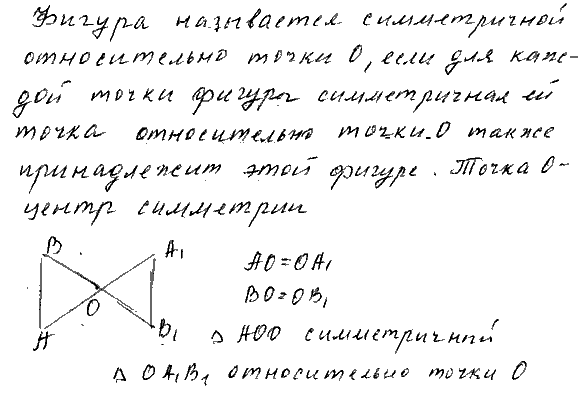 Фигура называется симметричной
относительно точки O, если для каж-
дой точки фигуры симметричная ей
точка относительно точки O также
принадлежит этой фигуре. Точка O-
центр симметрии
B A₁
AO=OA₁
BO=OB₁
O
A B₁
△ AOO симметричный
△ OA₁B₁ относительно точки O